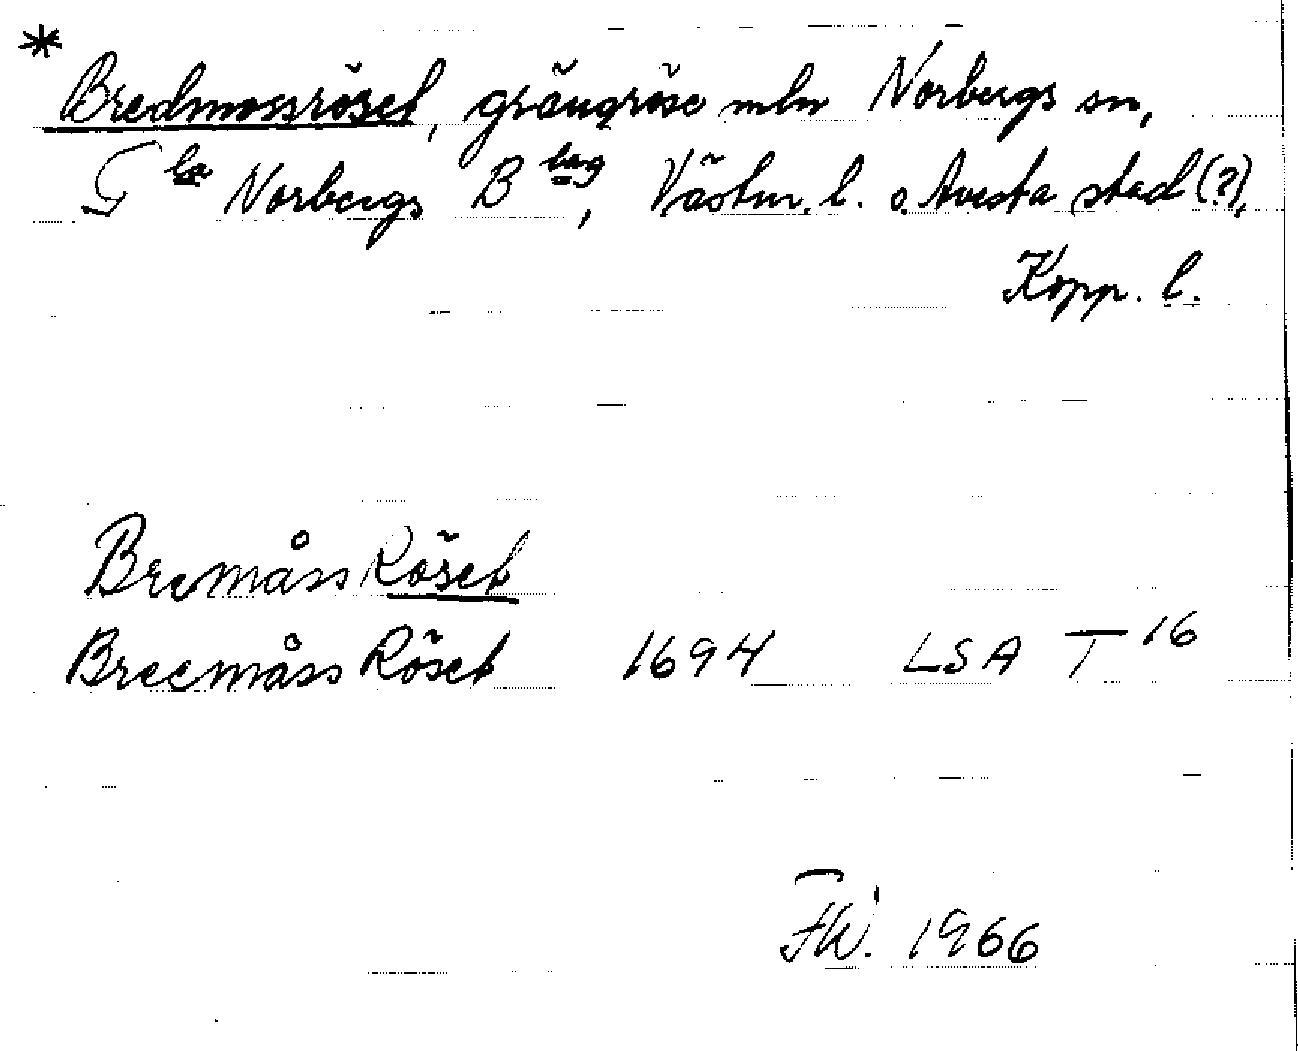 * Bredmossröset, gränsröse mln Norbergs sn,
Gla Norbergs Blag, Västm. l. o. Avesta stad (?),
Kopp. l.
BremåssRöset
BreemåssRöset 1694 LSA T 16
1966